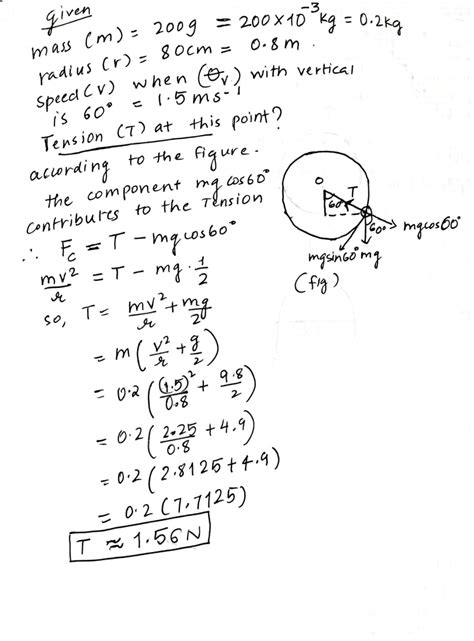 given
mass (m) = 200g = 200×10⁻³kg = 0.2kg
radius (r) = 80cm = 0.8m.
speed (v) when (θᵥ) with vertical
is 60° = 1.5ms⁻¹
Tension (T) at this point?
according to the figure.
the component mg cos60°
contributes to the Tension
∴ F_c = T − mg cos60°
mv²/r = T − mg·1/2
so, T = mv²/r + mg/2
= m(v²/r + g/2)
= 0.2((1.5)²/0.8 + 9.8/2)
= 0.2(2.25/0.8 + 4.9)
= 0.2(2.8125+4.9)
= 0.2(7.7125)
T ≈ 1.56N
O
T
60°
60°
mgcos60°
mgsin60° mg
(fig)